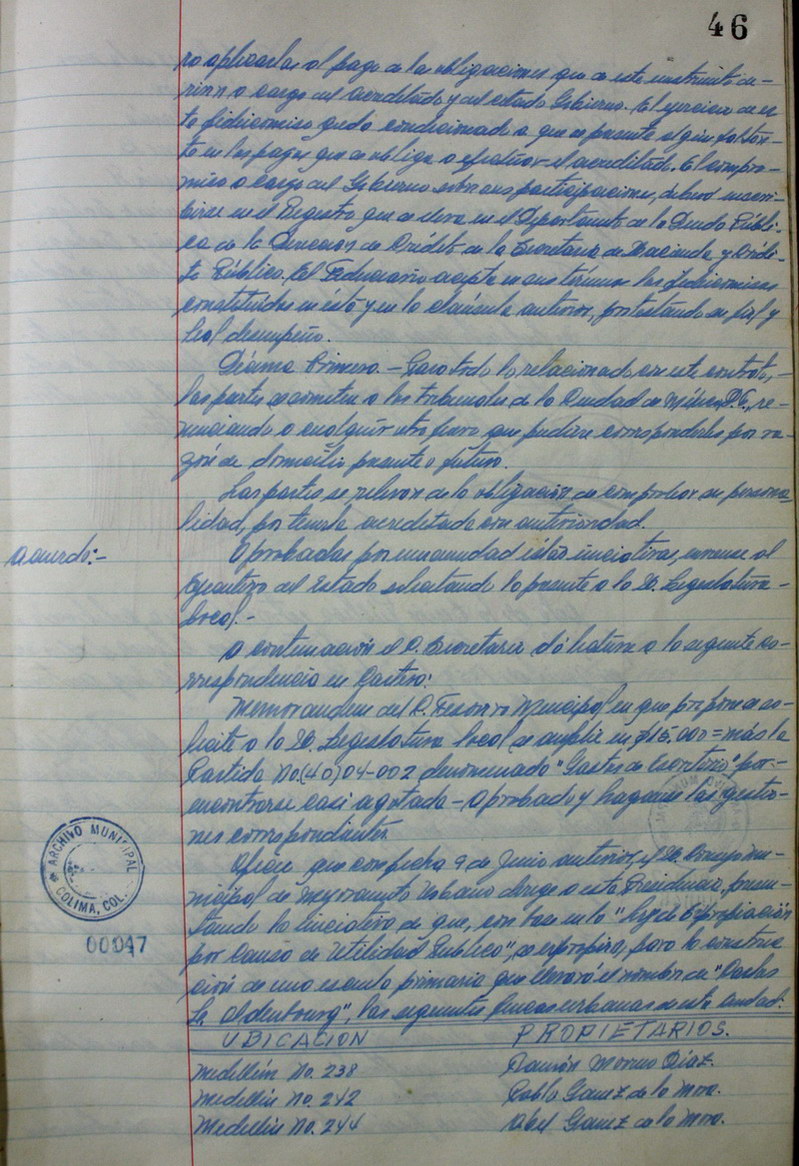 46
ro aplicarlas al pago de las obligaciones que de este instrumento de-
riven a cargo del acreditado y del citado Gobierno. El ejercicio de es
te fideicomiso queda condicionado a que se presente algún faltan-
te en los pagos que se obliga a efectuar el acreditado. El compro-
miso a cargo del Gobierno sobre sus participaciones, deberá inscri-
birse en el Registro que se lleva en el Departamento de la Deuda Públi-
ca de la Dirección de Crédito de la Secretaría de Hacienda y Crédi-
to Público. El Fiduciario acepta en sus términos los fideicomisos
constituidos en ésta y en la cláusula anterior, protestando su fiel y
leal desempeño.
Décima Primera.- Para todo lo relacionado con este contrato,-
las partes se someten a los tribunales de la Ciudad de México, D.F., re-
nunciando a cualquier otro fuero que pudiera corresponderles por ra-
zón de domicilio presente o futuro.
Las partes se relevan de la obligación de comprobar su persona
lidad, por tenerla acreditada con anterioridad.
Acuerdo:-
Aprobadas por unanimidad éstas iniciativas, envíense al
Ejecutivo del Estado solicitando lo presente a la H. Legislatura
local.-
A continuación el C. Secretario dá lectura a la siguiente co-
rrespondencia en Cartera:
Memorandum del C. Tesorero Municipal en que propone se so-
licite a la H. Legislatura local se amplíe en $15.000= más la
Partida No.(40)04-002 denominada "Gastos de Escritorio" por-
encontrarse casi agotada.- Aprobado y háganse las gestio-
nes correspondientes.
Oficio que con fecha 9 de Junio anterior, el H. Consejo Mu-
nicipal de Mejoramiento Urbano dirige a esta Presidencia, presen-
tando la iniciativa de que, con base en la "Ley de Expropiación
por Causa de Utilidad Pública", se expropien, para la construc
ción de una escuela primaria que llevará el nombre de "Carlos
L. Oldenbourg", las siguientes fincas urbanas de esta ciudad:
ARCHIVO MUNICIPAL
COLIMA, COL.
00047
UBICACION PROPIETARIOS.
Medellín No. 238 Ramón Moreno Díaz.
Medellín No. 242 Pablo Gamez de la Mora.
Medellín No. 244 Abel Gamez de la Mora.